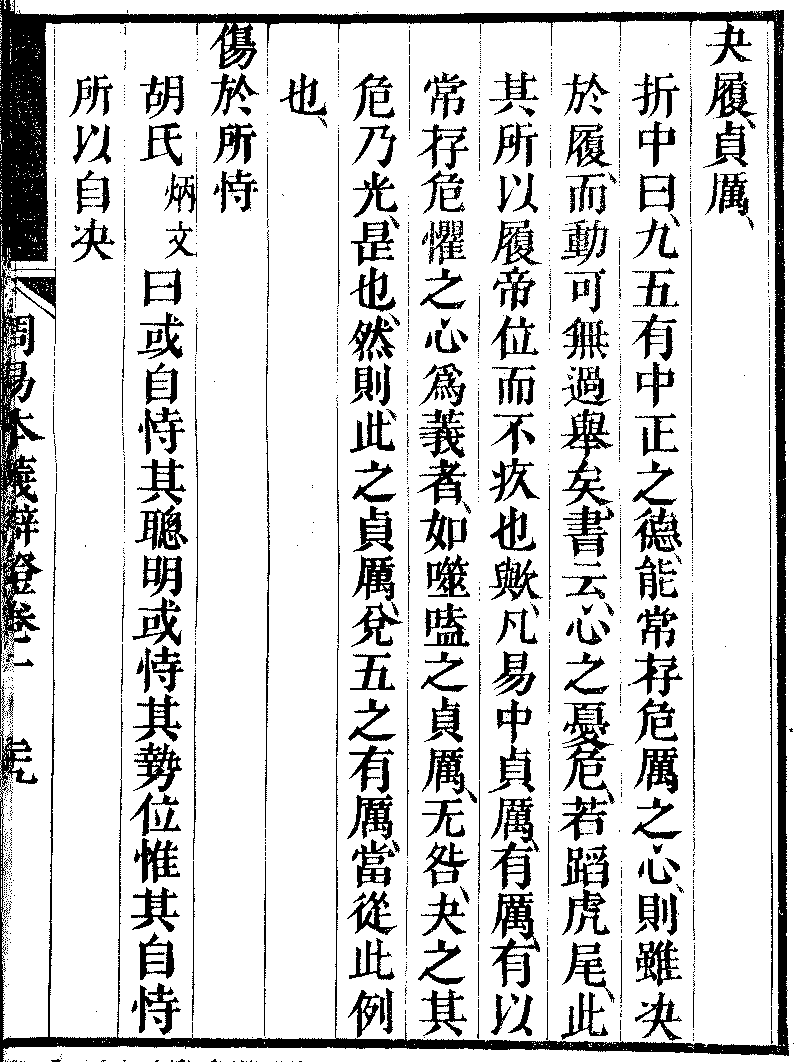 夬履、貞厲、
折中曰、九五有中正之德、能常存危厲之心、則雖決
於履、而動可無過舉矣、書云、心之憂危、若蹈虎尾、此
其所以履帝位而不疚也歟、凡易中貞厲、有厲、有以
常存危懼之心爲義者、如噬嗑之貞厲、无咎、夬之其
危乃光、是也、然則此之貞厲、兌五之有厲、當從此例
也、
傷於所恃
胡氏炳文曰或自恃其聰明或恃其勢位惟其自恃
所以自決
周易本義辯證卷一